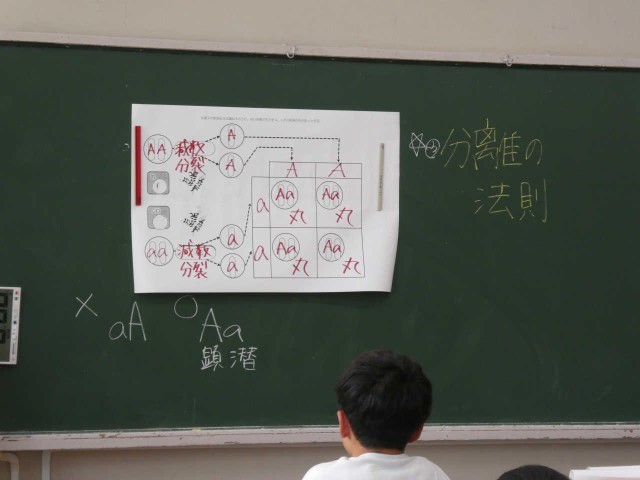 AA
減数
分裂
A
A
A A
a Aa 丸 Aa 丸
a Aa 丸 Aa 丸
aa
減数
分裂
a
a
分離の
法則
× aA
○ Aa
顕 潜